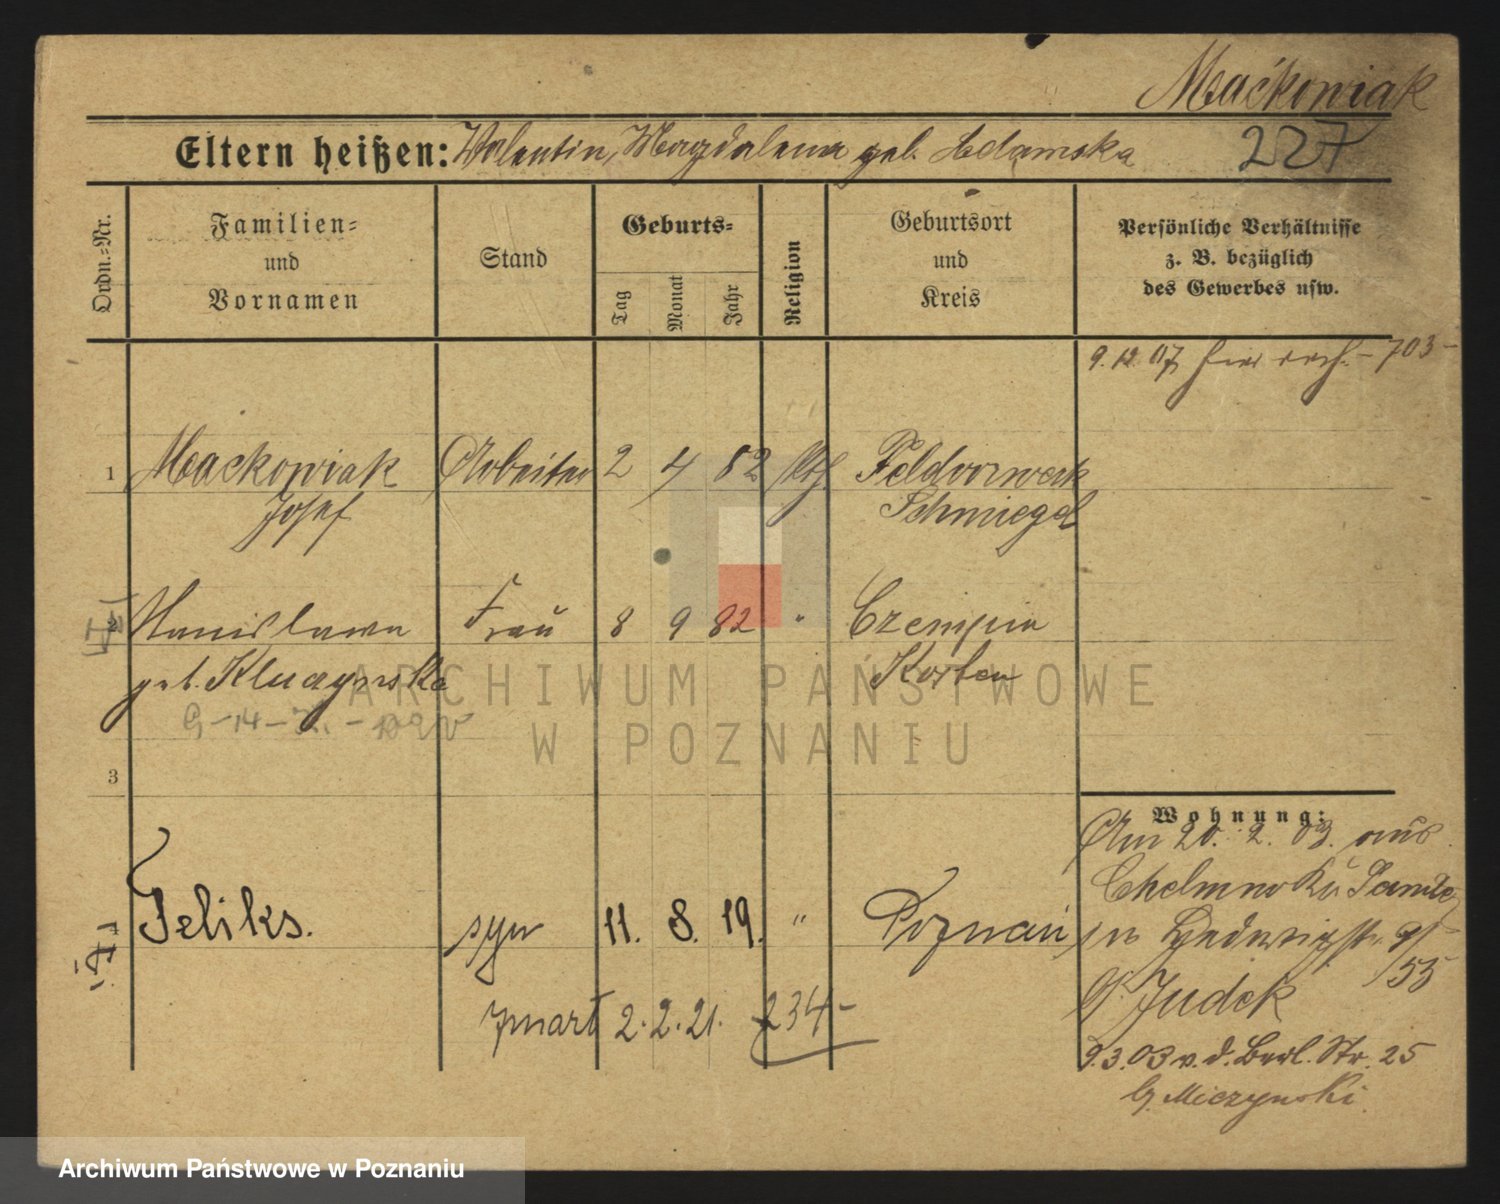 Maćkowiak
Eltern heißen: Valentin, Magdalena geb. Adamska
227
Ordn.-Nr.
Familien-
und
Vornamen
Stand
Geburts-
Tag
Monat
Jahr
Religion
Geburtsort
und
Kreis
Persönliche Verhältnisse
z. B. bezüglich
des Gewerbes usw.
9.12.07 hier 703-
1 Mackowiak Arbeiter 2 4 82 kth. Feldvorwerk
Josef Schmiegel
2 Stanislawa Frau 8 9 82 " Czempin
geb. Kosten
3
Wohnung:
Am 20.2.03. aus
Chelmno Kr. Samter
Feliks. syn 11. 8. 19. " Poznań
in Hedwigstr. 9/
55
b/ Judek
zmarł 2.2.21. 234-
9.3.03 v. d. Berl. Str. 25
b/ Miczynski
ARCHIWUM PAŃSTWOWE
W POZNANIU
Archiwum Państwowe w Poznaniu